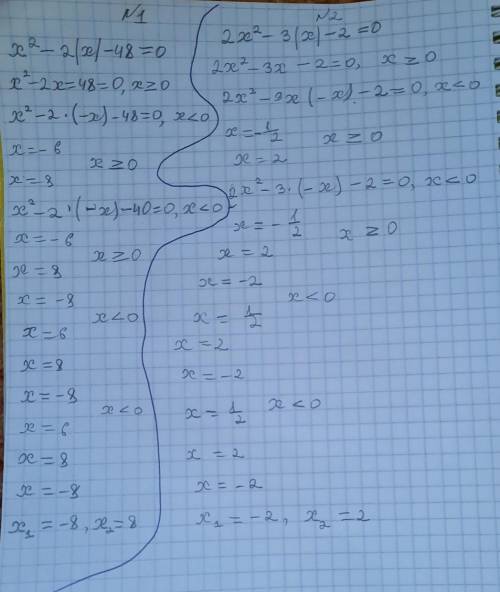 №1
x² - 2|x| - 48 = 0
x² - 2x = 48 = 0, x ≥ 0
x² - 2 · (-x) - 48 = 0, x < 0
x = - 6
x ≥ 0
x = 8
x² - 2 · (-x) - 40 = 0, x < 0
x = - 6
x ≥ 0
x = 8
x = - 8
x < 0
x = 6
x = 8
x = - 8
x < 0
x = 6
x = 8
x = - 8
x₁ = - 8, x₂ = 8
№2
2x² - 3|x| - 2 = 0
2x² - 3x - 2 = 0, x ≥ 0
2x² - 9x (-x) - 2 = 0, x < 0
x = - 1/2
x ≥ 0
x = 2
2x² - 3 · (-x) - 2 = 0, x < 0
x = - 1/2
x ≥ 0
x = 2
x = - 2
x < 0
x = 1/2
x = 2
x = - 2
x = 1/2 x < 0
x = 2
x = - 2
x₁ = - 2, x₂ = 2